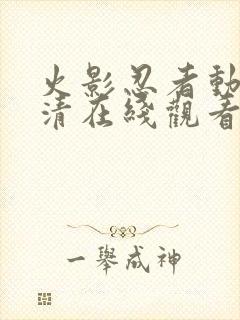 火影忍者動
清在綫觀看
一舉成神